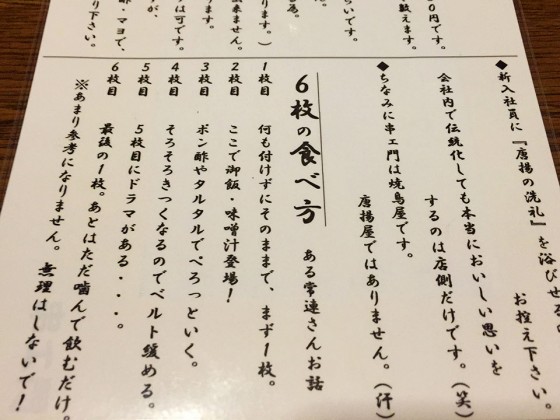 00円です。
教えます。
らいです。
急。
ります。）
出来ません。
ます。
すは可です。
すが、
酢・マヨで、
り下さい。
◆新入社員に『唐揚の洗礼』を浴びせる
お控え下さい。
会社内で伝統化しても本当においしい思いを
するのは店側だけです。（笑）
◆ちなみに串エ門は焼鳥屋です。
唐揚屋ではありません。（汗）
6枚の食べ方 ある常連さんお話
1枚目 何も付けずにそのままで、まず1枚。
2枚目 ここで御飯・味噌汁登場！
3枚目 ポン酢やタルタルでぺろっといく。
4枚目 そろそろきつくなるのでベルト緩める。
5枚目 5枚目にドラマがある・・・。
6枚目 最後の1枚。あとはただ噛んで飲むだけ。
※あまり参考になりません。 無理はしないで！